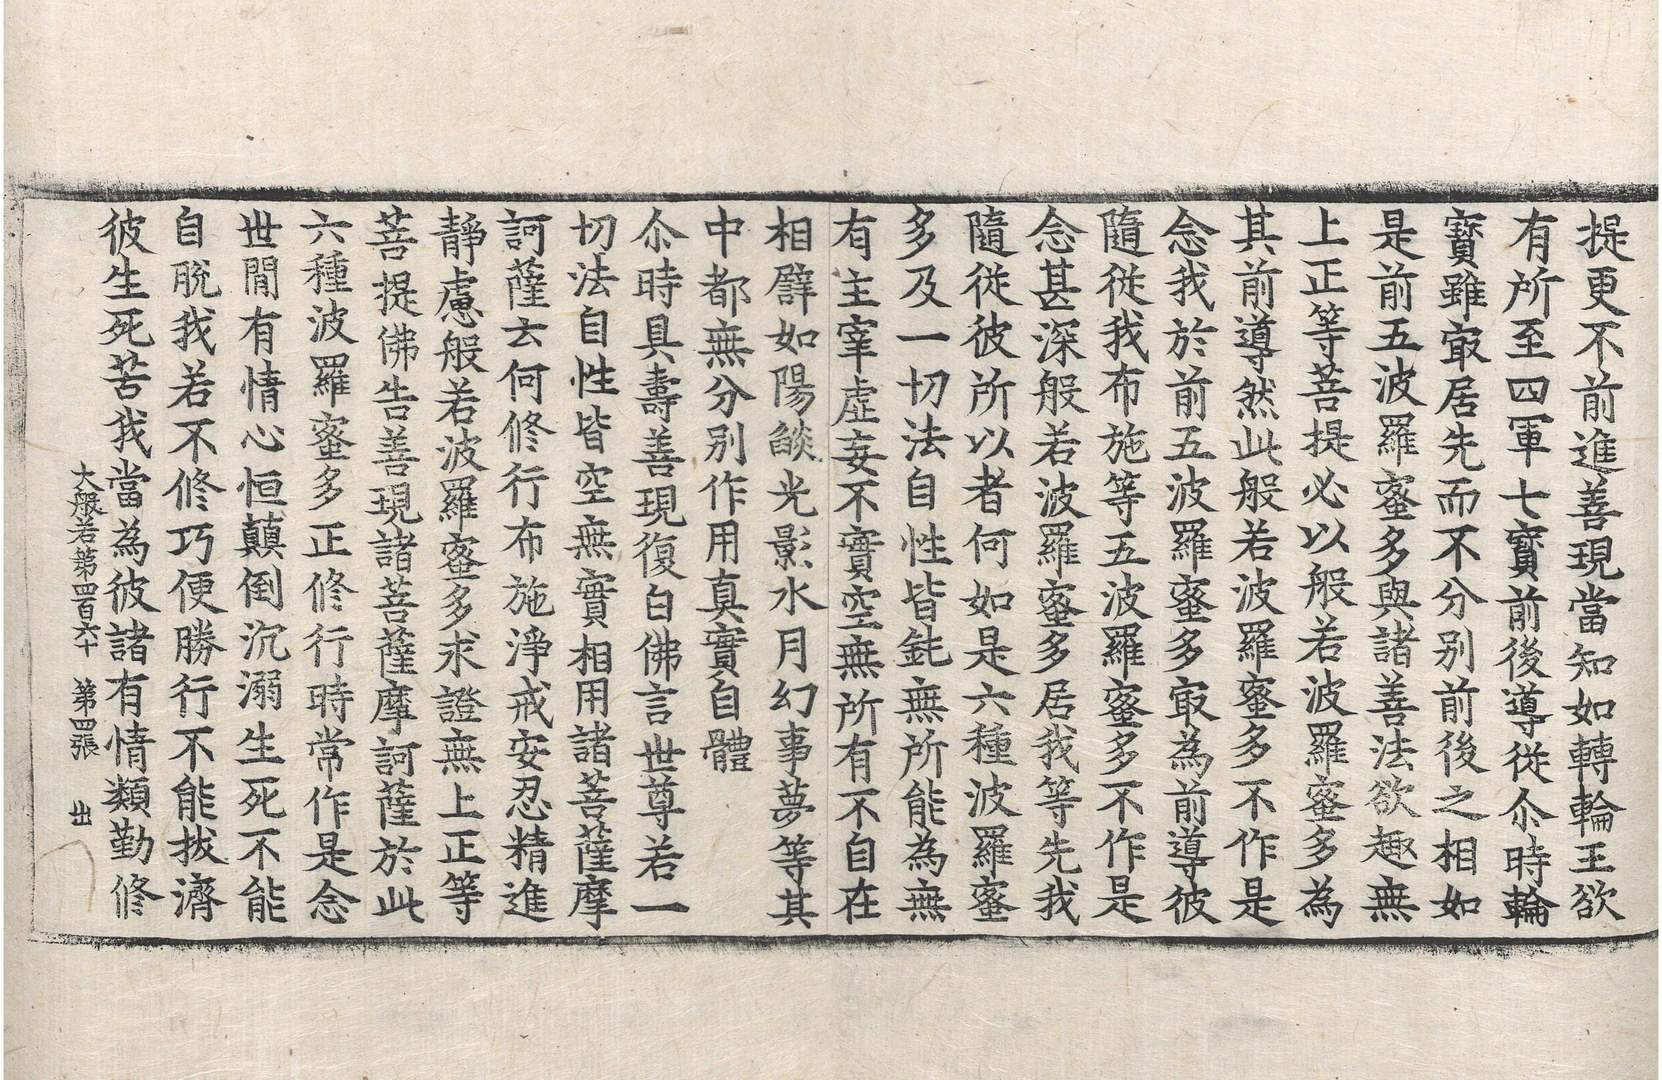 提更不前進善現當知如轉輪王欲
有所至四軍七寶前後導從尒時輪
寶雖㝡居先而不分別前後之相如
是前五波羅蜜多與諸善法欲趣無
上正等菩提必以般若波羅蜜多為
其前導然此般若波羅蜜多不作是
念我於前五波羅蜜多㝡為前導彼
隨從我布施等五波羅蜜多不作是
念甚深般若波羅蜜多居我等先我
隨從彼所以者何如是六種波羅蜜
多及一切法自性皆鈍無所能為無
有主宰虛妄不實空無所有不自在
相譬如陽焰光影水月幻事夢等其
中都無分別作用真實自體
尒時具壽善現復白佛言世尊若一
切法自性皆空無實相用諸菩薩摩
訶薩云何修行布施淨戒安忍精進
靜慮般若波羅蜜多求證無上正等
菩提佛告善現諸菩薩摩訶薩於此
六種波羅蜜多正修行時常作是念
世間有情心恒顛倒沉溺生死不能
自脫我若不修巧便勝行不能拔濟
彼生死苦我當為彼諸有情類勤修
大般若第四百六十 第四張 出